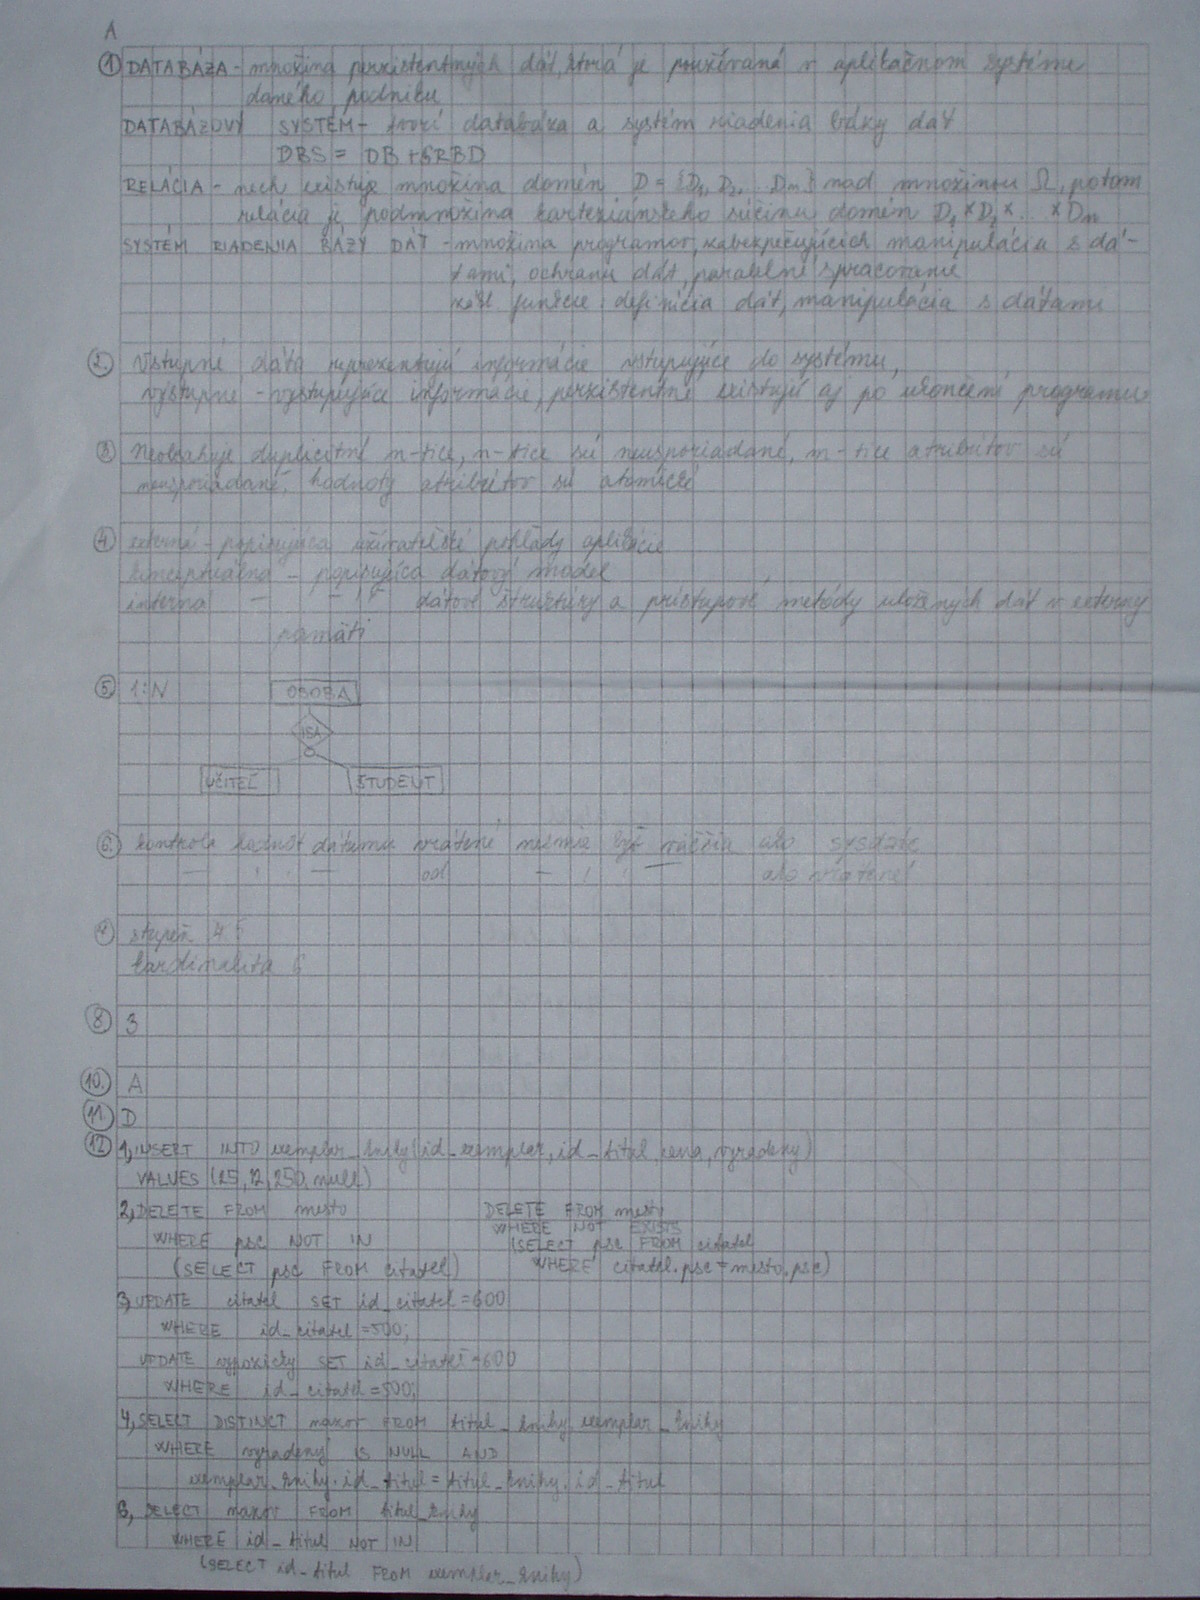 A
① DATABÁZA - množina perzistentných dát, ktorá je používaná v aplikačnom systéme
daného podniku
DATABÁZOVÝ SYSTÉM - tvorí databáza a systém riadenia bázy dát
DBS = DB + SRBD
RELÁCIA - nech existuje množina domén D = {D1, D2, ... Dn} nad množinou Ω, potom
relácia je podmnožina karteziánskeho súčinu domén D1 × D2 × ... × Dn
SYSTÉM RIADENIA BÁZY DÁT - množina programov, zabezpečujúcich manipuláciu s dá-
tami, ochranu dát, paralelné spracovanie
funkcie: definícia dát, manipulácia s dátami
②. Vstupné dáta reprezentujú informácie vstupujúce do systému,
výstupné - vystupujúce informácie, perzistentné existujú aj po ukončení programu
③ Neobsahuje duplicitné n-tice, n-tice sú neusporiadané, n-tice atribútov sú
neusporiadané, hodnoty atribútov sú atomické
④. externá - popisujúca užívateľské pohľady aplikácie
konceptuálna - popisujúca dátový model
interná - " - dátové štruktúry a prístupové metódy uložených dát v externej
pamäti
⑤. 1:N OSOBA
ISA
UČITEĽ ŠTUDENT
⑥. kontrola hodnôt dátumu vrátené nesmie byť väčšia ako sysdate
— " — od — " — ako vrátené
⑦ stupeň 4.5
kardinalita 6
⑧. 3
⑩. A
⑪. D
⑫ 1, INSERT INTO exemplar_knihy (id_exemplar, id_titul, cena, vyradeny)
VALUES (25, 12, 250, null)
2, DELETE FROM mesto
WHERE psc NOT IN
(SELECT psc FROM citatel)
DELETE FROM mesto
WHERE NOT EXISTS
(SELECT psc FROM citatel
WHERE citatel.psc = mesto.psc)
3, UPDATE citatel SET id_citatel = 600
WHERE id_citatel = 500;
UPDATE vypozicky SET id_citatel = 600
WHERE id_citatel = 500;
4, SELECT DISTINCT nazov FROM titul_knihy, exemplar_knihy
WHERE vyradeny IS NULL AND
exemplar_knihy.id_titul = titul_knihy.id_titul
5, SELECT nazov FROM titul_knihy
WHERE id_titul NOT IN
(SELECT id_titul FROM exemplar_knihy)